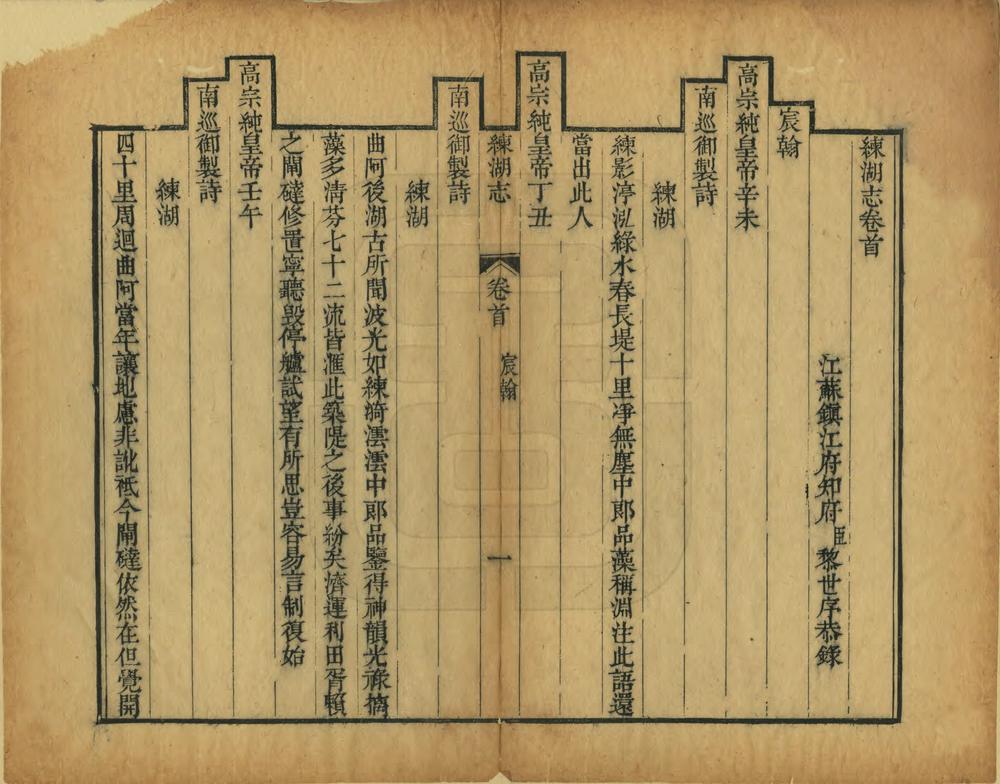 練湖志卷首
江蘇鎮江府知府臣黎世序恭錄
宸翰
高宗純皇帝辛未
南巡御製詩
練湖
練影渟泓綠水春長堤十里凈無塵中郎品藻稱淵注此語還
當出此人
高宗純皇帝丁丑
練湖志 卷首 宸翰 一
南巡御製詩
練湖
曲阿後湖古所聞波光如練漪澐澐中郎品鑒得神韻光祿摛
藻多清芬七十二流皆滙此築隄之後事紛矣濟運利田胥賴
之閘䃮修置寧聽毀停艫試望有所思豈容易言制復始
高宗純皇帝壬午
南巡御製詩
練湖
四十里周迴曲阿當年讓地慮非訛祗今閘䃮依然在但覺開